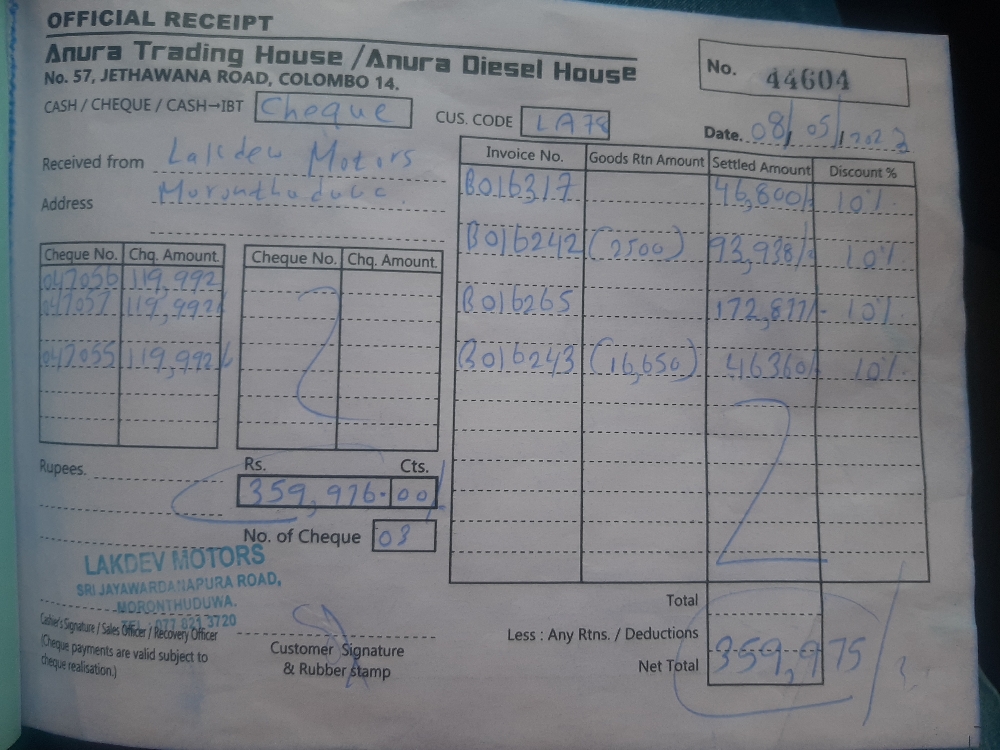 OFFICIAL RECEIPT
Anura Trading House /Anura Diesel House
No. 57, JETHAWANA ROAD, COLOMBO 14.
No. 44604
CASH / CHEQUE / CASH→IBT Cheque
CUS. CODE LA78
Date. 08/05/2023
Received from Lakdew Motors
Address
Invoice No. Goods Rtn Amount Settled Amount Discount %
B016317 46,800/- 10%
B016242 (2500) 93,938/- 10%
B016265 172,877/- 10%
B016243 (16,650) 46360/- 10%
Cheque No. Chq. Amount. Cheque No. Chq. Amount.
047056 119,992
047057 119,992/-
047055 119,992/-
Rupees. Rs. Cts.
359,976.00/
No. of Cheque 03
LAKDEV MOTORS
SRI JAYAWARDANAPURA ROAD,
MORONTHUDUWA.
TEL : 077 821 3720
Cashier's Signature / Sales Officer / Recovery Officer
(Cheque payments are valid subject to
cheque realisation.)
Customer Signature
& Rubber stamp
Total
Less : Any Rtns. / Deductions
Net Total 359,975/